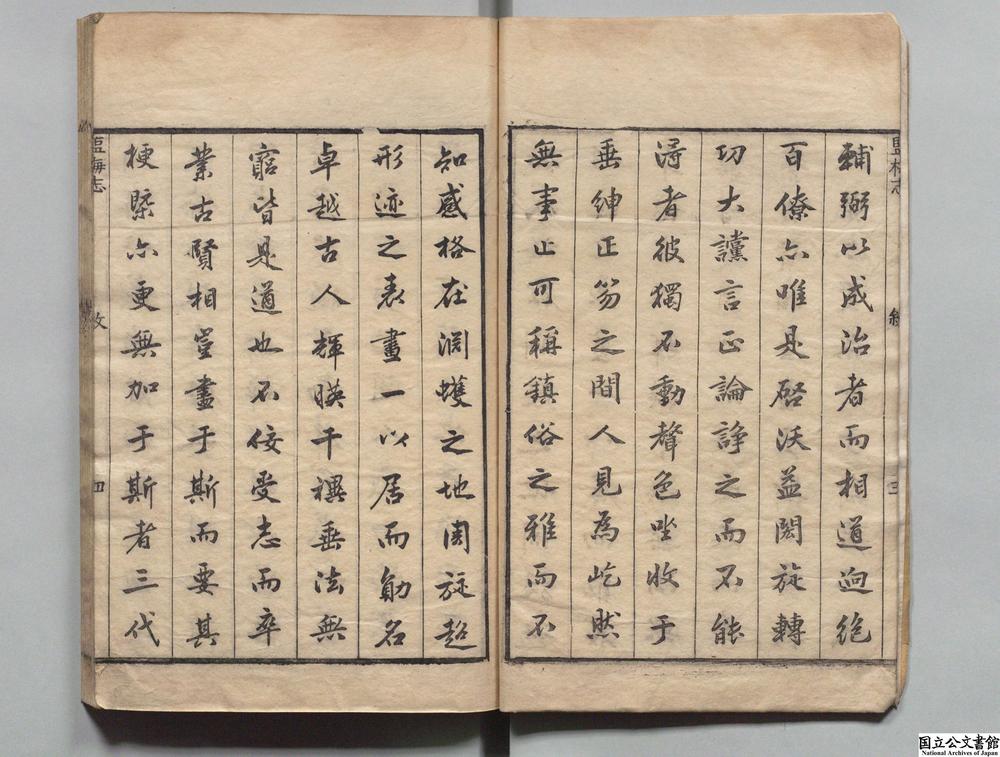 輔弼以成治者而相道迥絶
百僚亦唯是啓沃益闕旋轉
功大讜言正論諍之而不能
得者彼獨不動聲色坐收于
垂紳正笏之間人見為屹然
無事止可稱鎮俗之雅而不
知感格在淵蠖之地周旋超
形迹之表畫一以居而勛名
卓越古人輝暎千禩垂法無
窮皆是道也不佞受志而卒
業古賢相蓋盡于斯而要其
梗槩亦更無加于斯者三代
鹽梅志
三
鹽梅志
四
国立公文書館
National Archives of Japan